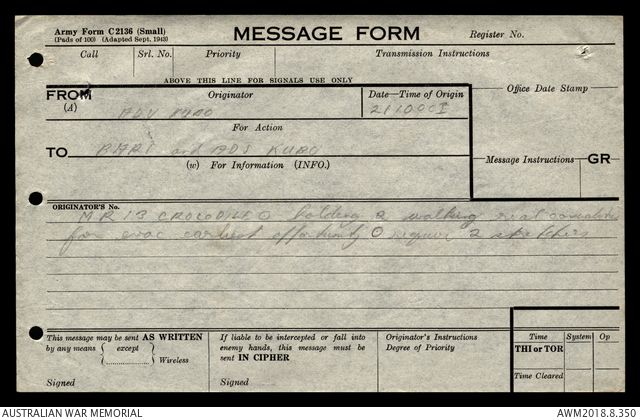 Army Form C2136 (Small)
(Pads of 100) (Adapted Sept. 1943)
MESSAGE FORM
Register No.
Call
Srl. No.
Priority
Transmission Instructions
ABOVE THIS LINE FOR SIGNALS USE ONLY
FROM
(A)
Originator
Date—Time of Origin
Office Date Stamp
ADV
For Action
TO
and ADS KUBO
(W) For Information (INFO.)
Message Instructions
GR
ORIGINATOR'S No.
MR 13 CROCODILE O holding 2 walking
for evac earliest opportunity O require 2
This message may be sent AS WRITTEN
by any means { except }
Wireless
Signed
If liable to be intercepted or fall into
enemy hands, this message must be
sent IN CIPHER
Signed
Originator's Instructions
Degree of Priority
Time
System
Op
THI or TOR
Time Cleared
AUSTRALIAN WAR MEMORIAL
AWM2018.8.350